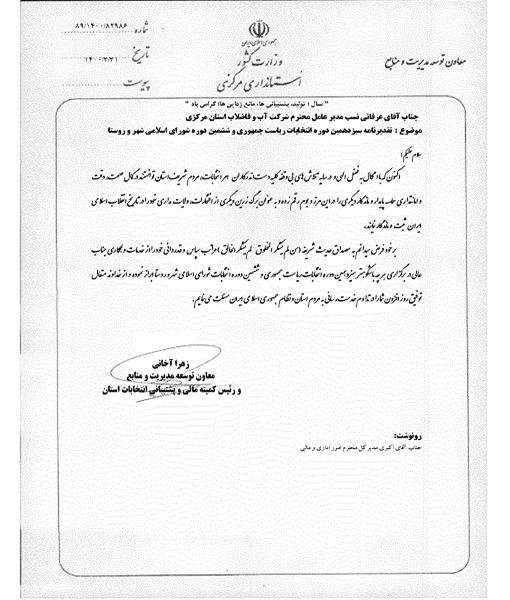 شماره ۸۹/۱۴۰۰/۸۲۹۸۶
تاریخ ۱۴۰۰/۳/۳۱
پیوست
جمهوری اسلامی ایران
وزارت کشور
استانداری مرکزی
معاون توسعه مدیریت و منابع
" سال : تولید، پشتیبانی ها، مانع زدایی ها؛ گرامی باد "
جناب آقای عرفانی نسب مدیر عامل محترم شرکت آب و فاضلاب استان مرکزی
موضوع : تقدیرنامه سیزدهمین دوره انتخابات ریاست جمهوری و ششمین دوره شورای اسلامی شهر و روستا
سلام علیکم؛
اکنون که با اتکال به فضل الهی و در سایه تلاش های بی وقفه کلیه دست اندرکاران امر انتخابات، مردم شریف استان توانستند در کمال صحت، دقت
و امانتداری حماسه پایدار و ماندگار دیگری را در این مرز و بوم رقم زده و به عنوان برگ زرین دیگری از افتخارات، ولایت مداری خود در تاریخ انقلاب اسلامی
ایران ثبت و ماندگار نمایند.
بر خود فرض میدانم به مصداق حدیث شریفه من لم یشکر المخلوق لم یشکر الخالق مراتب سپاس و قدردانی خود را از خدمات و همکاری جناب
عالی در برگزاری هر چه باشکوهتر سیزدهمین دوره انتخابات ریاست جمهوری و ششمین دوره انتخابات شورای اسلامی شهر و روستا ابراز نموده و از خداوند متعال
توفیق روز افزون شما را در تداوم خدمت رسانی به مردم استان و نظام جمهوری اسلامی ایران مسئلت می نمایم.
زهرا آخانی
معاون توسعه مدیریت و منابع
و رئیس کمیته مالی و پشتیبانی انتخابات استان
رونوشت:
جناب آقای اکبری مدیر کل محترم امور اداری و مالی